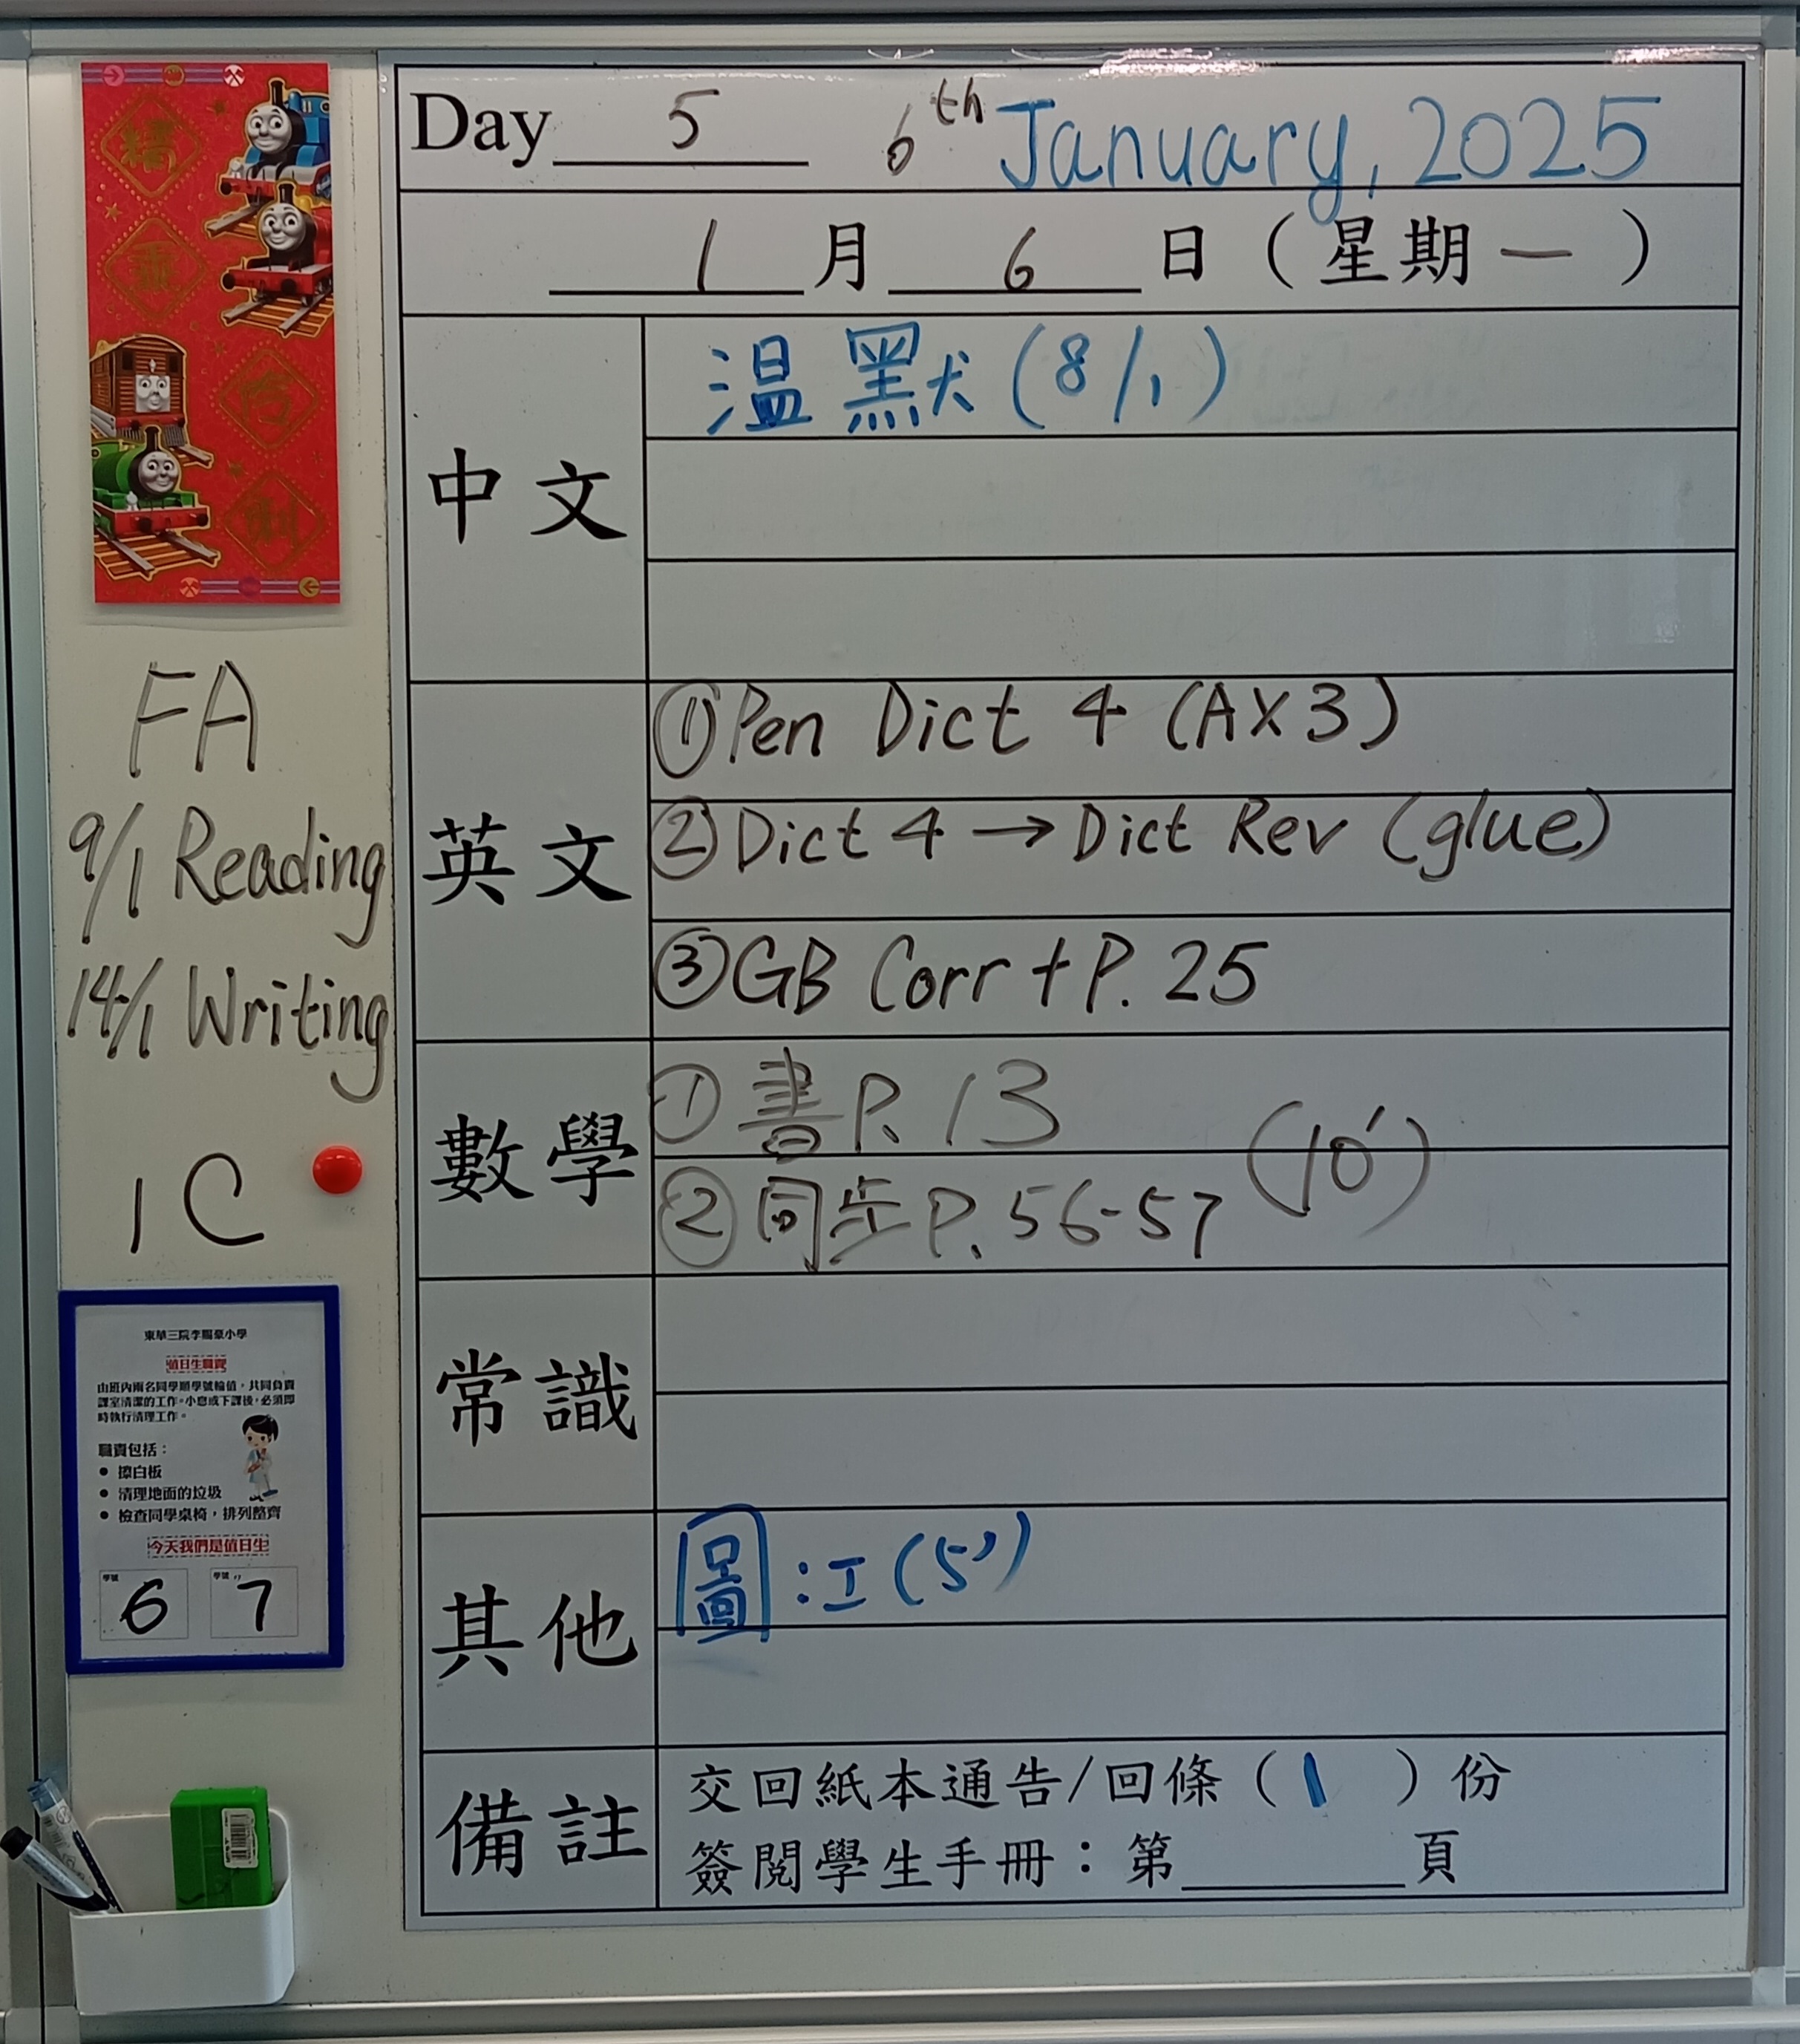 精
乖
伶
俐
FA
9/1 Reading
14/1 Writing
1C
東華三院李賜豪小學
值日生職責
由班內兩名同學順學號輪值，共同負責
課室清潔的工作。小息或下課後，必須即
時執行清理工作。
職責包括：
● 擦白板
● 清理地面的垃圾
● 檢查同學桌椅，排列整齊
今天我們是值日生
學號 學號
6 7
Day 5 6th January, 2025
1 月 6 日（星期一）
中文
温默(8/1)
英文
①Pen Dict 4 (AX3)
②Dict 4 → Dict Rev (glue)
③GB Corr + P. 25
數學
①書P.13
②同步P.56-57 (10')
常識
其他
圖:工(5')
備註
交回紙本通告/回條（1）份
簽閱學生手冊：第______頁